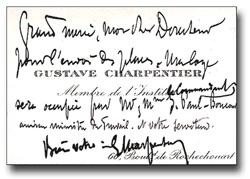 Grand merci, mon cher Directeur
pour l'envoi des places
GUSTAVE CHARPENTIER
Membre de l'Institut
sera occupée par Mr & Mme
ancien ministre du Travail. et votre serviteur
Bien votre G Charpentier
66, Boul. de Rochechouart